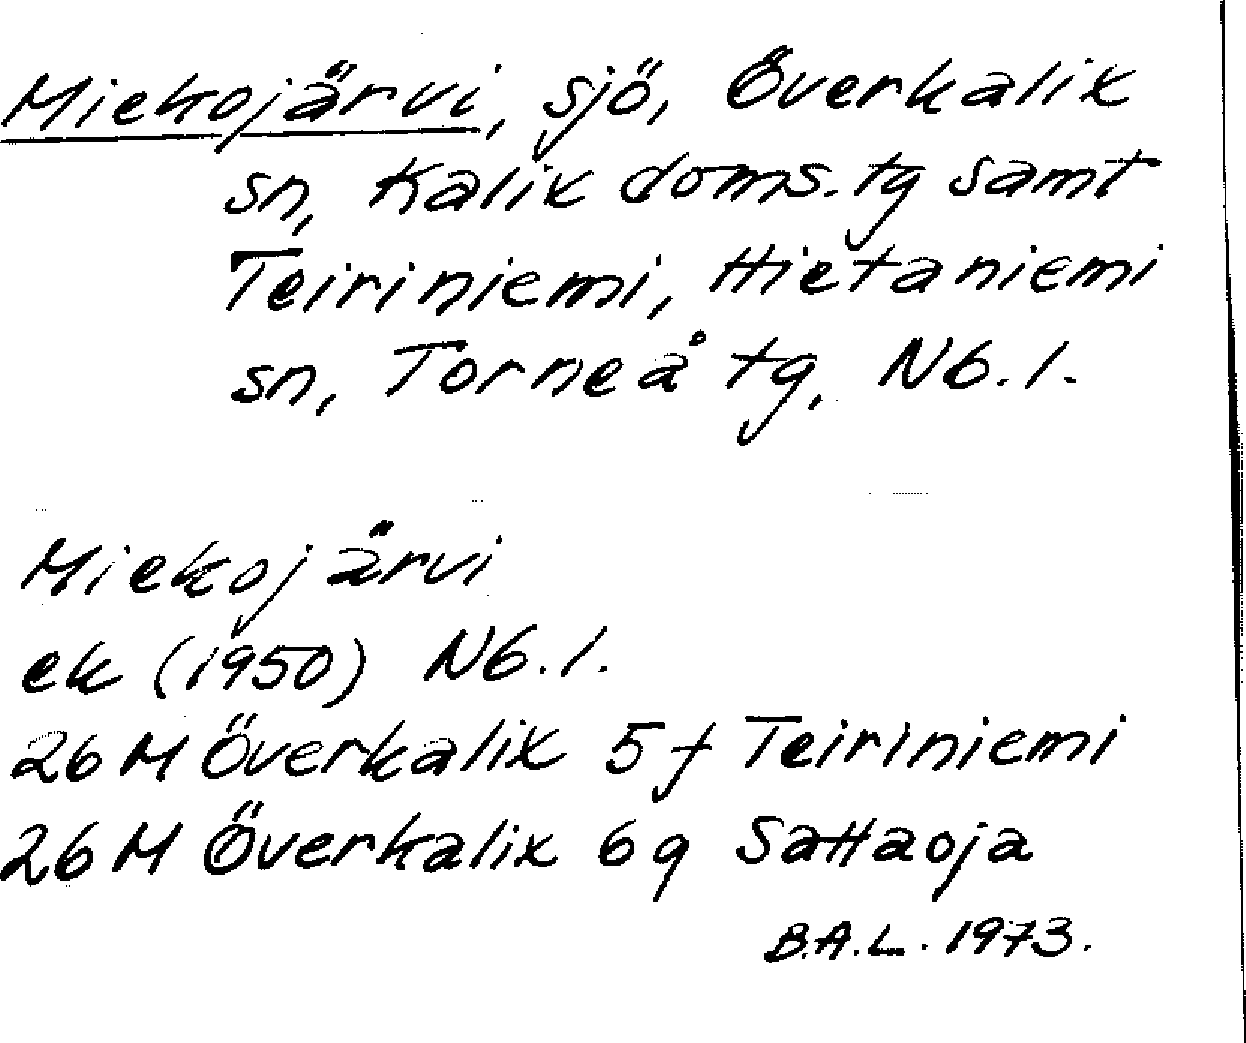 Miekojärvi, sjö, Överkalix
sn, Kalix doms.tg samt
Teiriniemi, Hietaniemi
sn, Torneå tg, N6.1.
Miekojärvi
ek (1950) N6.1.
26 M Överkalix 5f Teiriniemi
26 M Överkalix 6g Sattaoja
B.A.L. 1973.